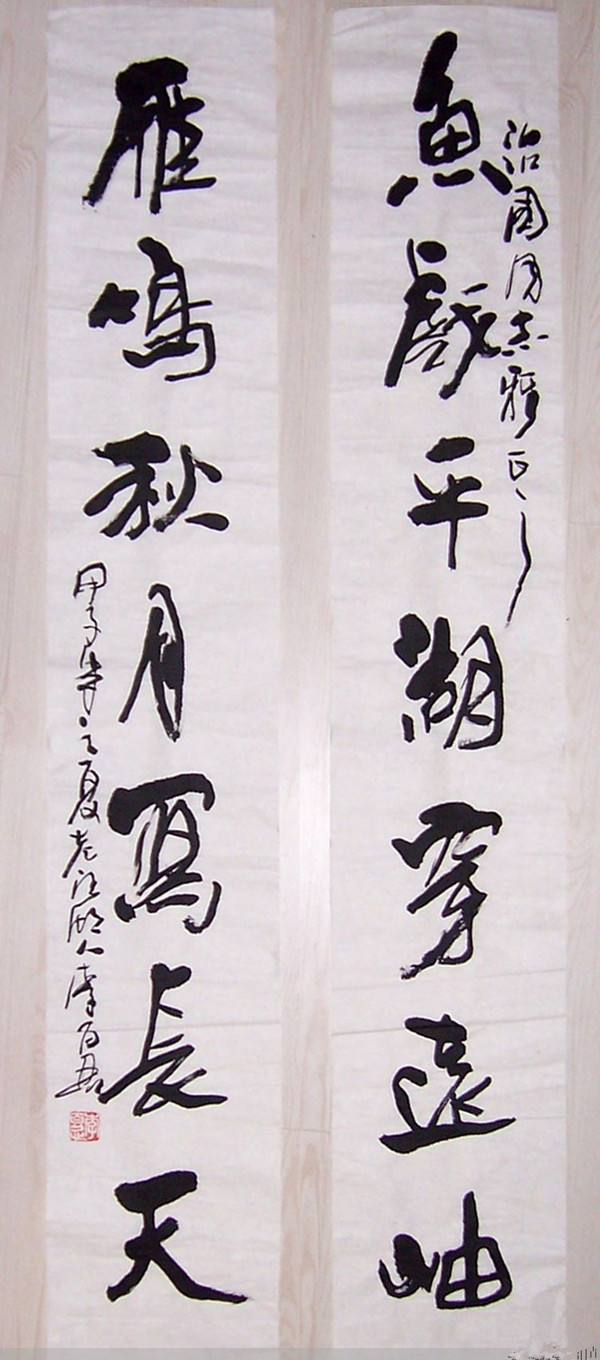 魚戲平湖穿遠岫
治国同志雅正
雁鳴秋月寫長天
甲子年之夏老江湖人李百忍